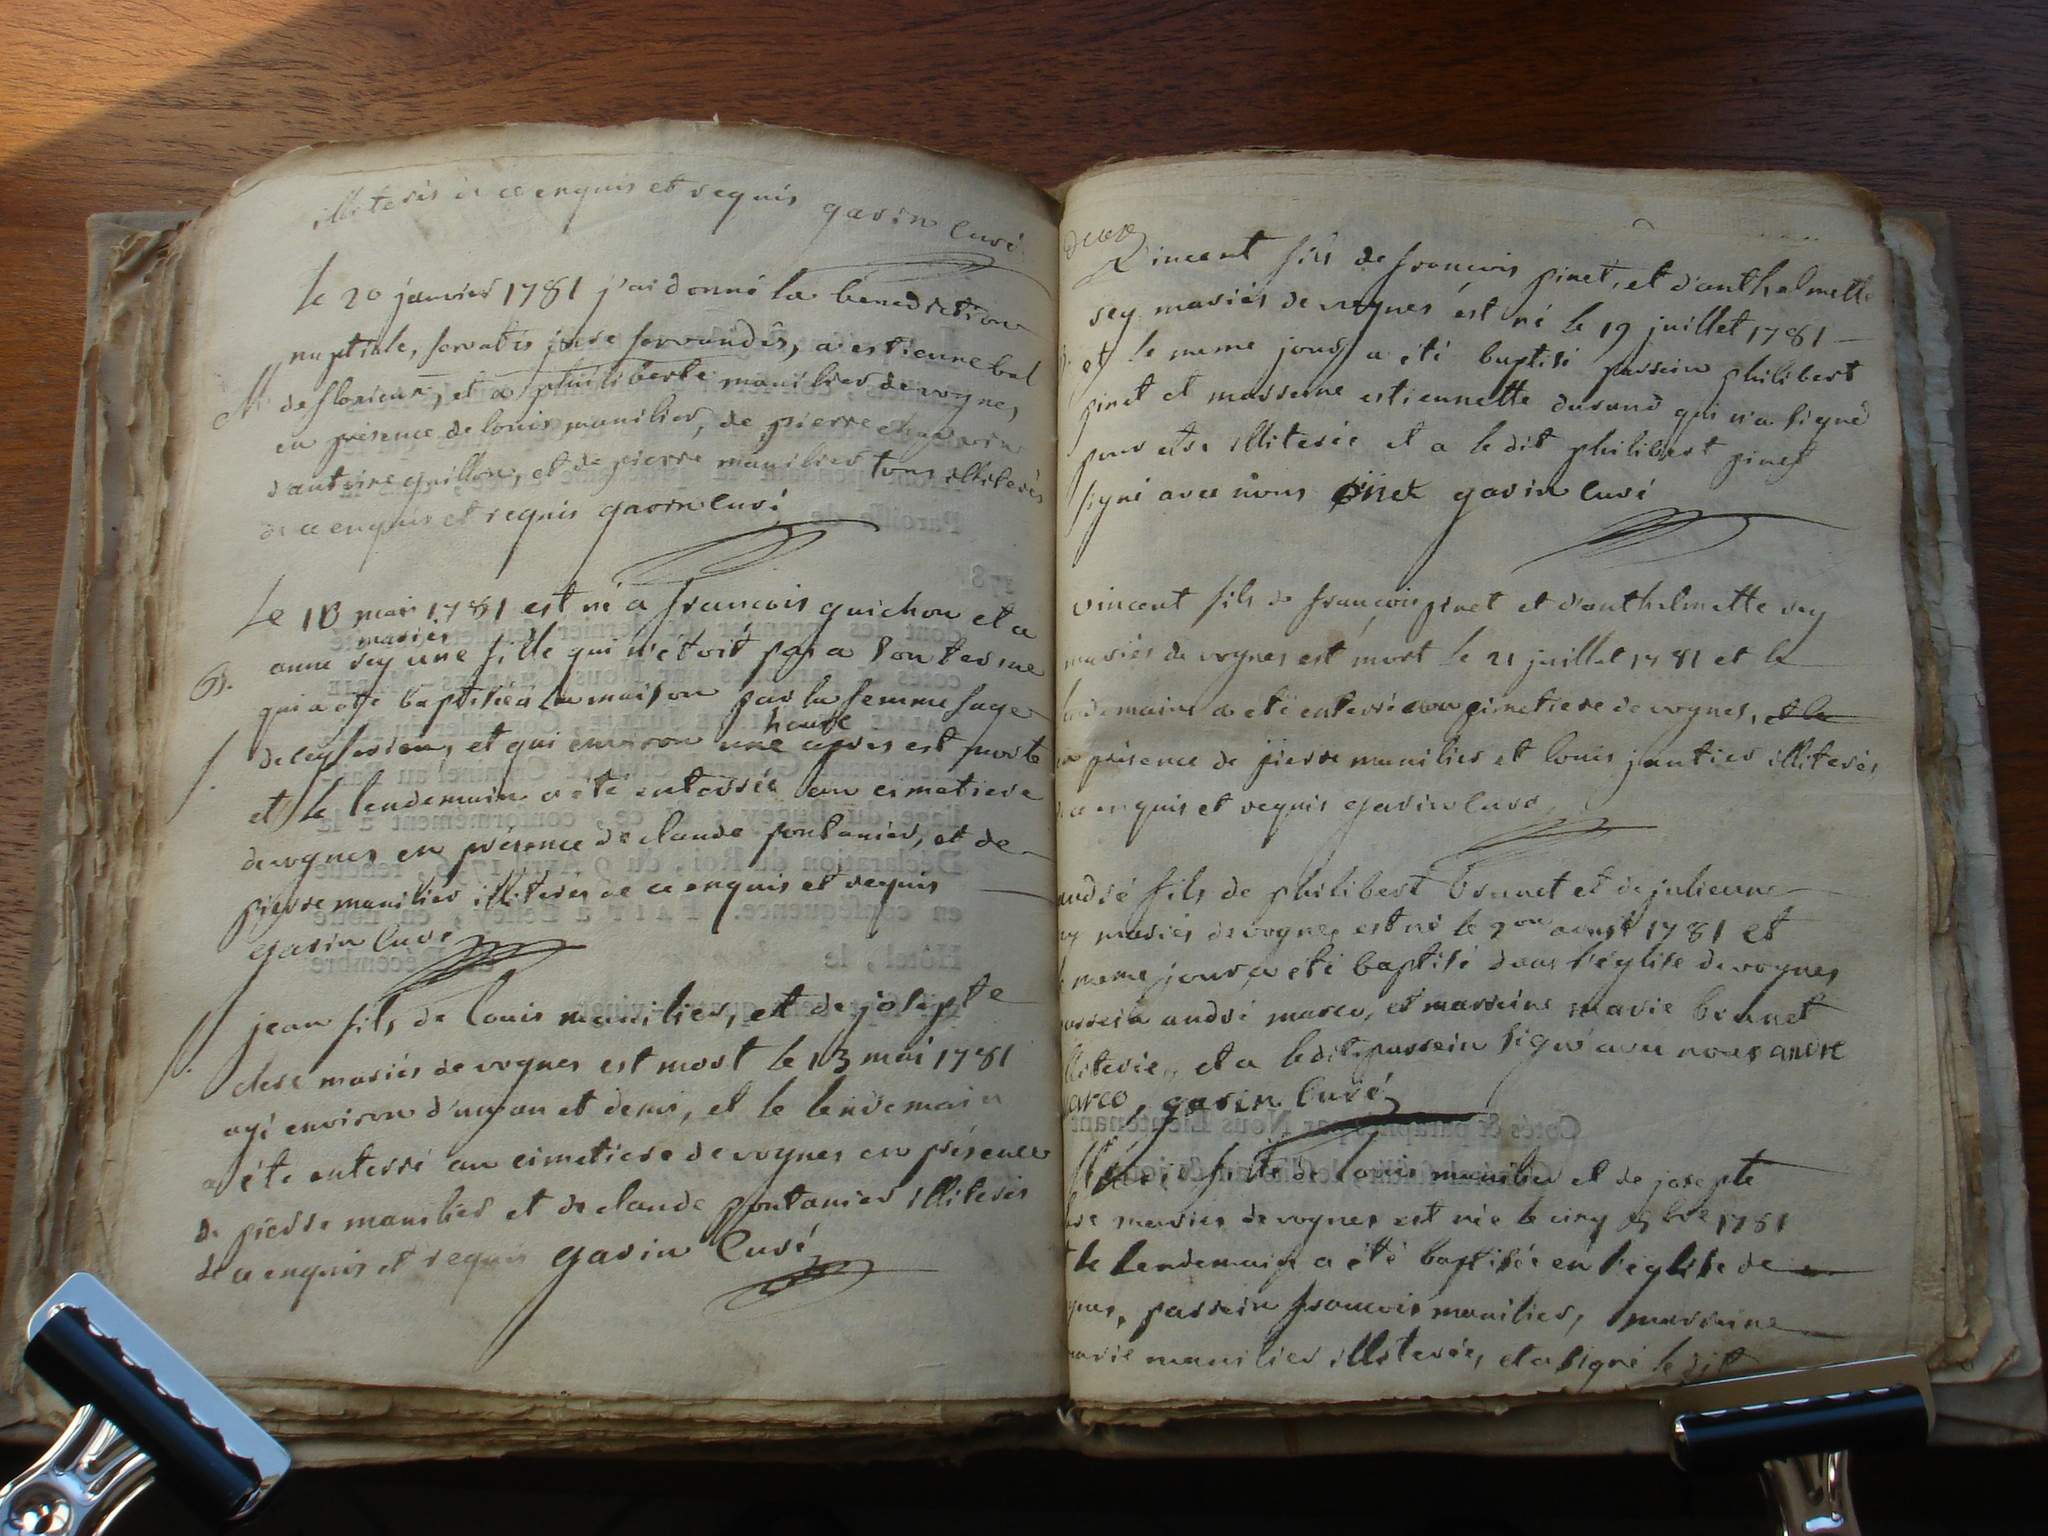 illiterés de ce enquis et requis gavin curé
le 20 janvier 1781 j'ai donné la benediction
nuptiale, servatis jure servandis, a estienne bal
M. de florieux, et a philiberte manilier de vognes,
en présence de louis manilier, de pierre
d'antoine guillon, et de pierre manilier tous illiterés
de ce enquis et requis gavin curé
Le 10 mai 1781 est né a francois guichon et a
mariés
anne sey une fille qui n'étoit pas a son terme
B. qui a été baptisée a la maison par la femme sage
heure
de ceyserieu, et qui environ une apres est morte
S. et le lendemain a été enterrée au cimetiere
de vognes en présence de claude pontanier, et de
pierre manilier illiterés de ce enquis et requis
gavin curé
S. jean fils de louis manilier, et de josepte
clere mariés de vognes est mort le 13 mai 1781
agé environ d'un an et demi, et le lendemain
a été enterré au cimetiere de vognes en présence
de pierre manilier et de claude pontanier illiterés
de ce enquis et requis gavin curé
deux
Vincent fils de francois pinet, et d'anthelmette
sey mariés de vognes est né le 19 juillet 1781
B. et le meme jour a été baptisé parrein philibert
pinet et marreine estiennette durand qui n'a signé
pour etre illiterée et a le dit philibert pinet
signé avec nous pinet gavin curé
vincent fils de françois pinet et d'anthelmette sey
mariés de vognes est mort le 21 juillet 1781 et le
lendemain a été enterré au cimetiere de vognes, et le
en présence de pierre manilier et louis jantier illiterés
de ce enquis et requis gavin curé
andré fils de philibert brunet et de julienne
mariés de vognes est né le 9on aoust 1781 et
le meme jour a été baptisé dans l'église de vognes
parrein andré marco, et marreine marie brunet
illiterée, et a le dit parrein signé avec nous andre
marco, gavin curé
fille de louis manilier et de josepte
clere mariés de vognes est née le cinq 7bre 1781
et le lendemain a été baptisée en l'église de
vognes, parrein francois manilier, marreine
marie manilier illiterée, et a signé le dit